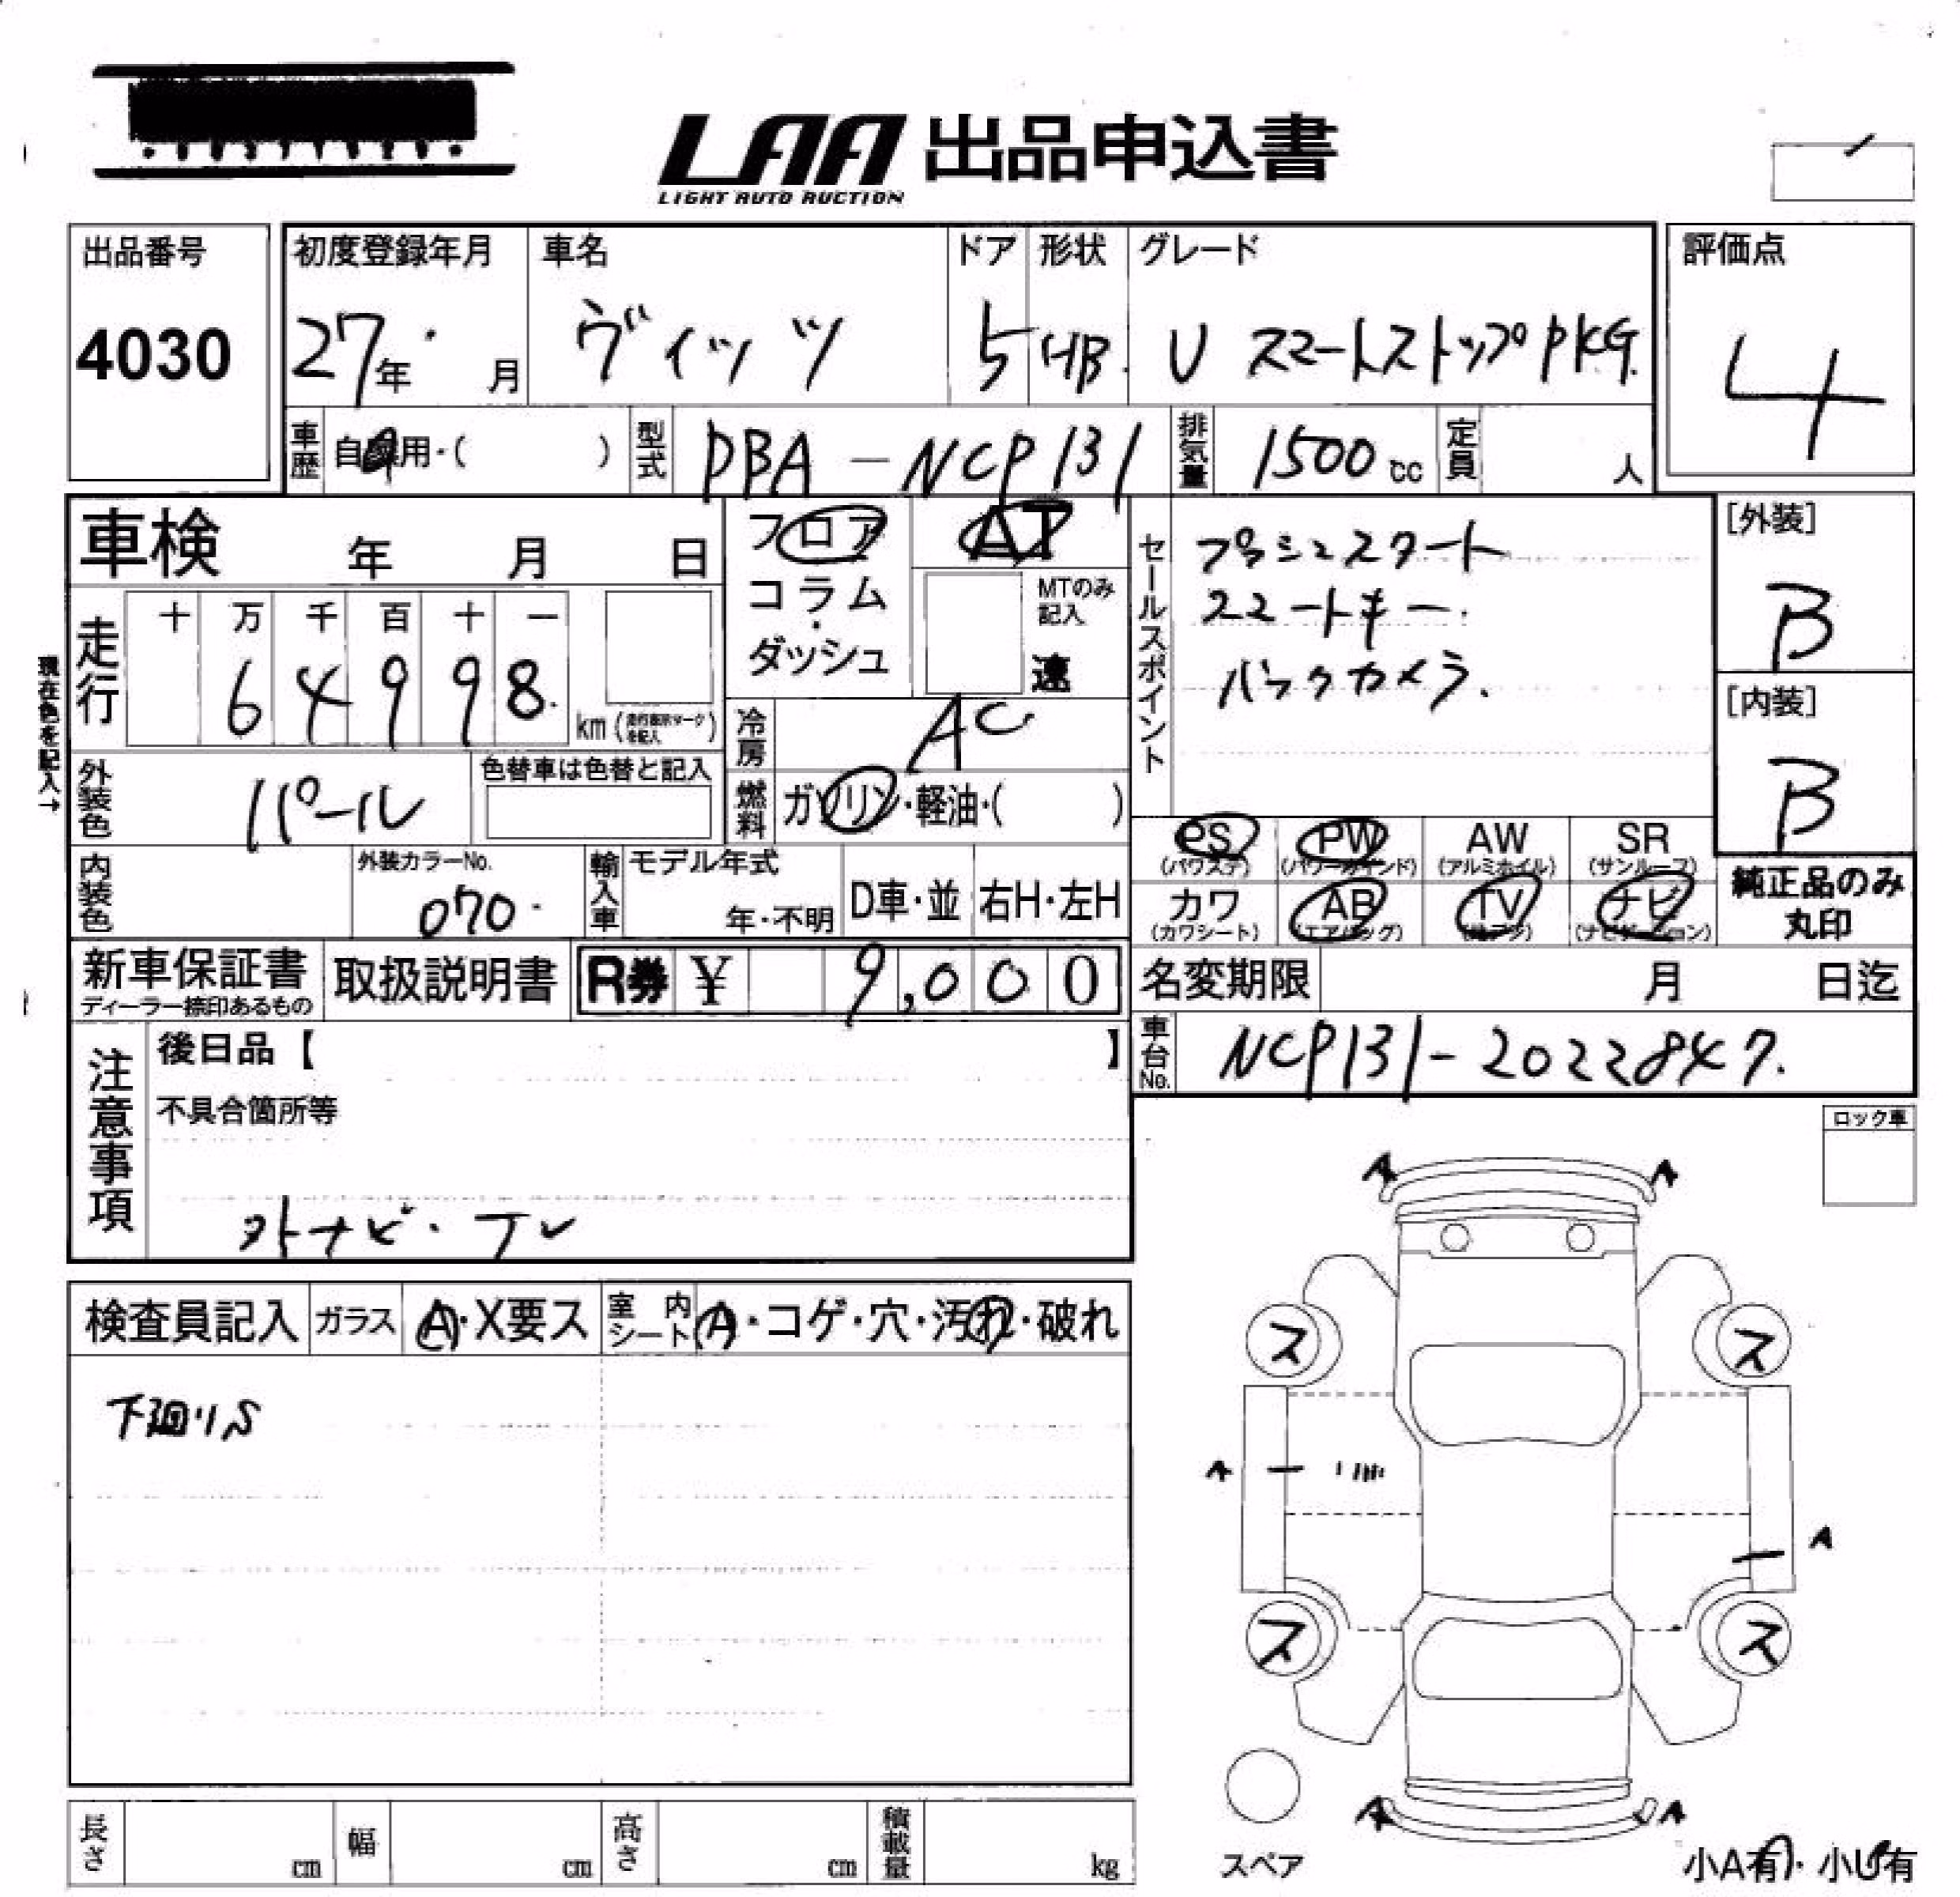 LAA 出品申込書
LIGHT AUTO AUCTION
出品番号
4030
初度登録年月
27年 月
車名
ヴィッツ
ドア
5
形状
HB.
グレード
U スマートストップPKG.
評価点
4
車歴
自 用・( )
型式
DBA-NCP131
排気量
1500 cc
定員
人
車検 年 月 日
フロア
コラム
ダッシュ
AT
MTのみ
記入
速
セールスポイント
プッシュスタート
スマートキー.
バックカメラ.
[外装]
B
[内装]
B
現在色を記入→
走行
十 万 千 百 十 一
6 4 9 9 8.
km
冷房
AC
外装色
パール
色替車は色替と記入
燃料
ガソリン・軽油・( )
PS
(パワステ)
PW
(パワーウインド)
AW
(アルミホイル)
SR
(サンルーフ)
内装色
外装カラーNo.
070.
輸入車
モデル年式
年・不明
D車・並
右H・左H
カワ
(カワシート)
AB
(エアバッグ)
TV
ナビ
(ナビゲーション)
純正品のみ
丸印
新車保証書
ディーラー捺印あるもの
取扱説明書
R券 ¥ 9,000
名変期限 月 日迄
車台No.
NCP131-2022847.
注意事項
後日品【 】
不具合箇所等
外ナビ・TV
ロック車
検査員記入
ガラス
A・X要ス
室内シート
A・コゲ・穴・汚れ・破れ
下廻りS
A A
ス ス
A
A
ス ス
A A
スペア
小A有・小U有
長さ cm
幅 cm
高さ cm
積載量 kg